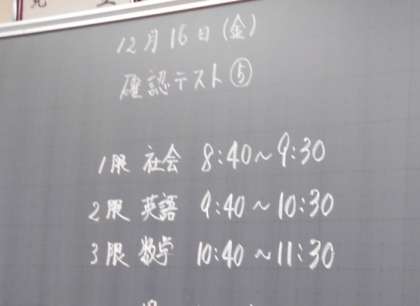 12月16日(金)
確認テスト⑤
1限 社会 8:40~9:30
2限 英語 9:40~10:30
3限 数学 10:40~11:30